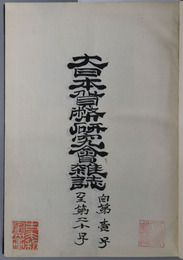 大日本貨幣研究会雑誌
自第壹号
至第二十号